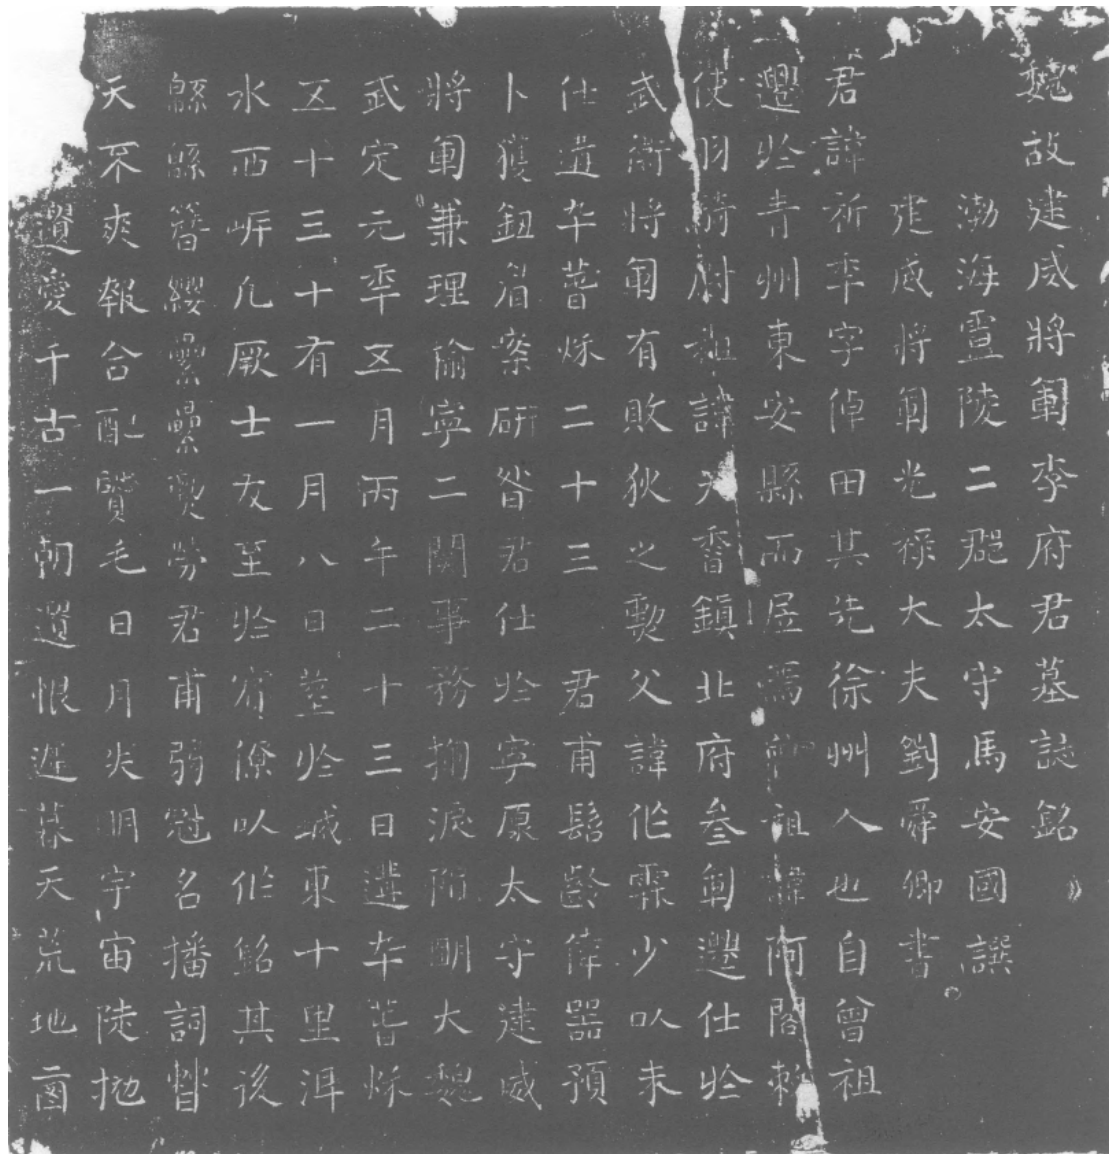 魏故建威將軍李府君墓誌銘
渤海㝵陵二郡太守馬安國譔
建威將軍光祿大夫劉舜卿書
君諱祈年字倬田其先徐州人也自曾祖
遷於青州東安縣而居焉曾祖諱阿閣刺
使羽騎尉祖諱大香鎮北府參軍遷仕於
武衛將軍有敗狄之勳父諱作霖少以未
仕遺年春秋二十三 君甫髫齡偉器預
卜獲鈕眉案硏眷君仕於寧原太守建威
將軍兼理偷寧二關事務捬淚陑酬大魏
武定元年五月丙午二十三日遷年春秋
五十三十有一月八日塟於城東十里洱
水西岸凡厥士友至於寮僚以作銘其後
綿綿簪纓纍纍勳勞君甫弱冠名播詞曹
天不爽報合配賢毛日月光明宇宙陡拋
遺愛千古一朝遺恨遲暮天荒地啚